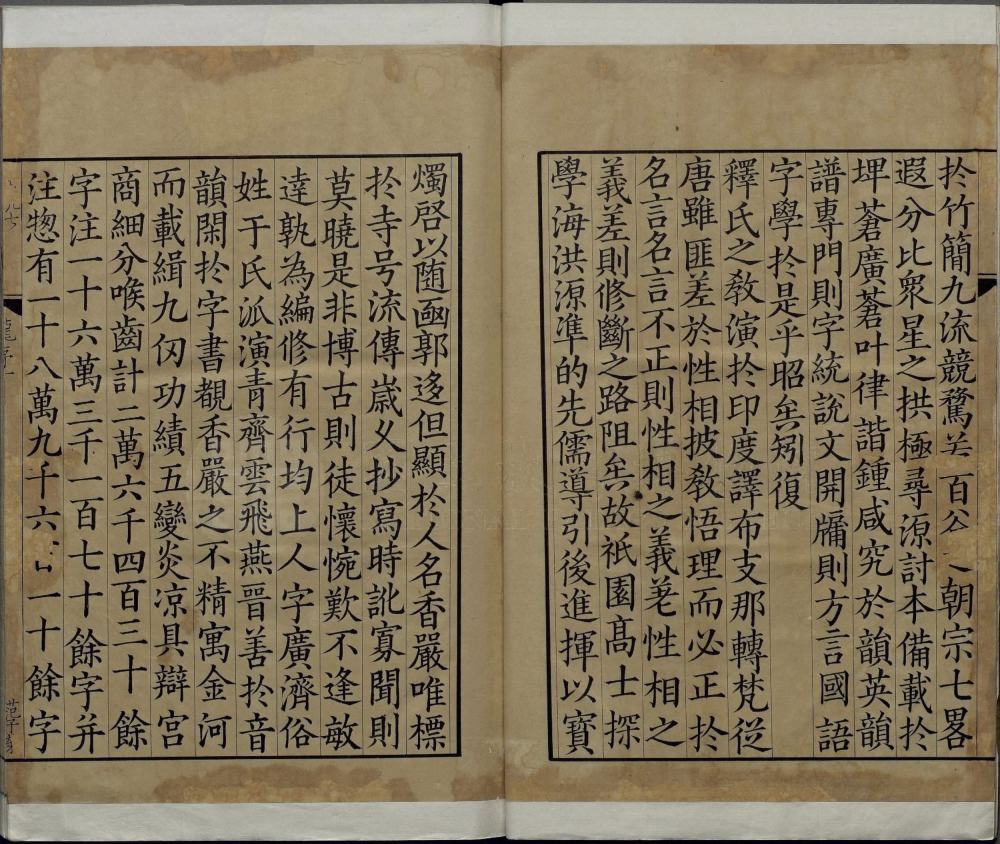 扵竹簡九流競騖若百谷之朝宗七畧
遐分比衆星之拱極尋源討本備載扵
埤蒼廣蒼叶律諧鍾咸究於韻英韻
譜專門則字統說文開牖則方言國語
字學扵是乎昭矣矧復
釋氏之敎演扵印度譯布支那轉梵從
唐雖匪差於性相披敎悟理而必正扵
名言名言不正則性相之義差性相之
義差則修斷之路阻矣故祇園髙士探
學海洪源準的先儒導引後進揮以寶
燭啓以随函郭迻但顯扵人名香嚴唯標
扵寺号流傳歳乆抄寫時訛寡聞則
莫曉是非博古則徒懷惋歎不逢敏
達孰為編修有行均上人字廣濟俗
姓于氏派演青齊雲飛燕晉善扵音
韻閑扵字書覩香嚴之不精寓金河
而載緝九仭功績五變炎凉具辯宫
商細分喉齒計二萬六千四百三十餘
字注一十六萬三千一百七十餘字并
注惣有一十八萬九千六一十餘字
龍序一